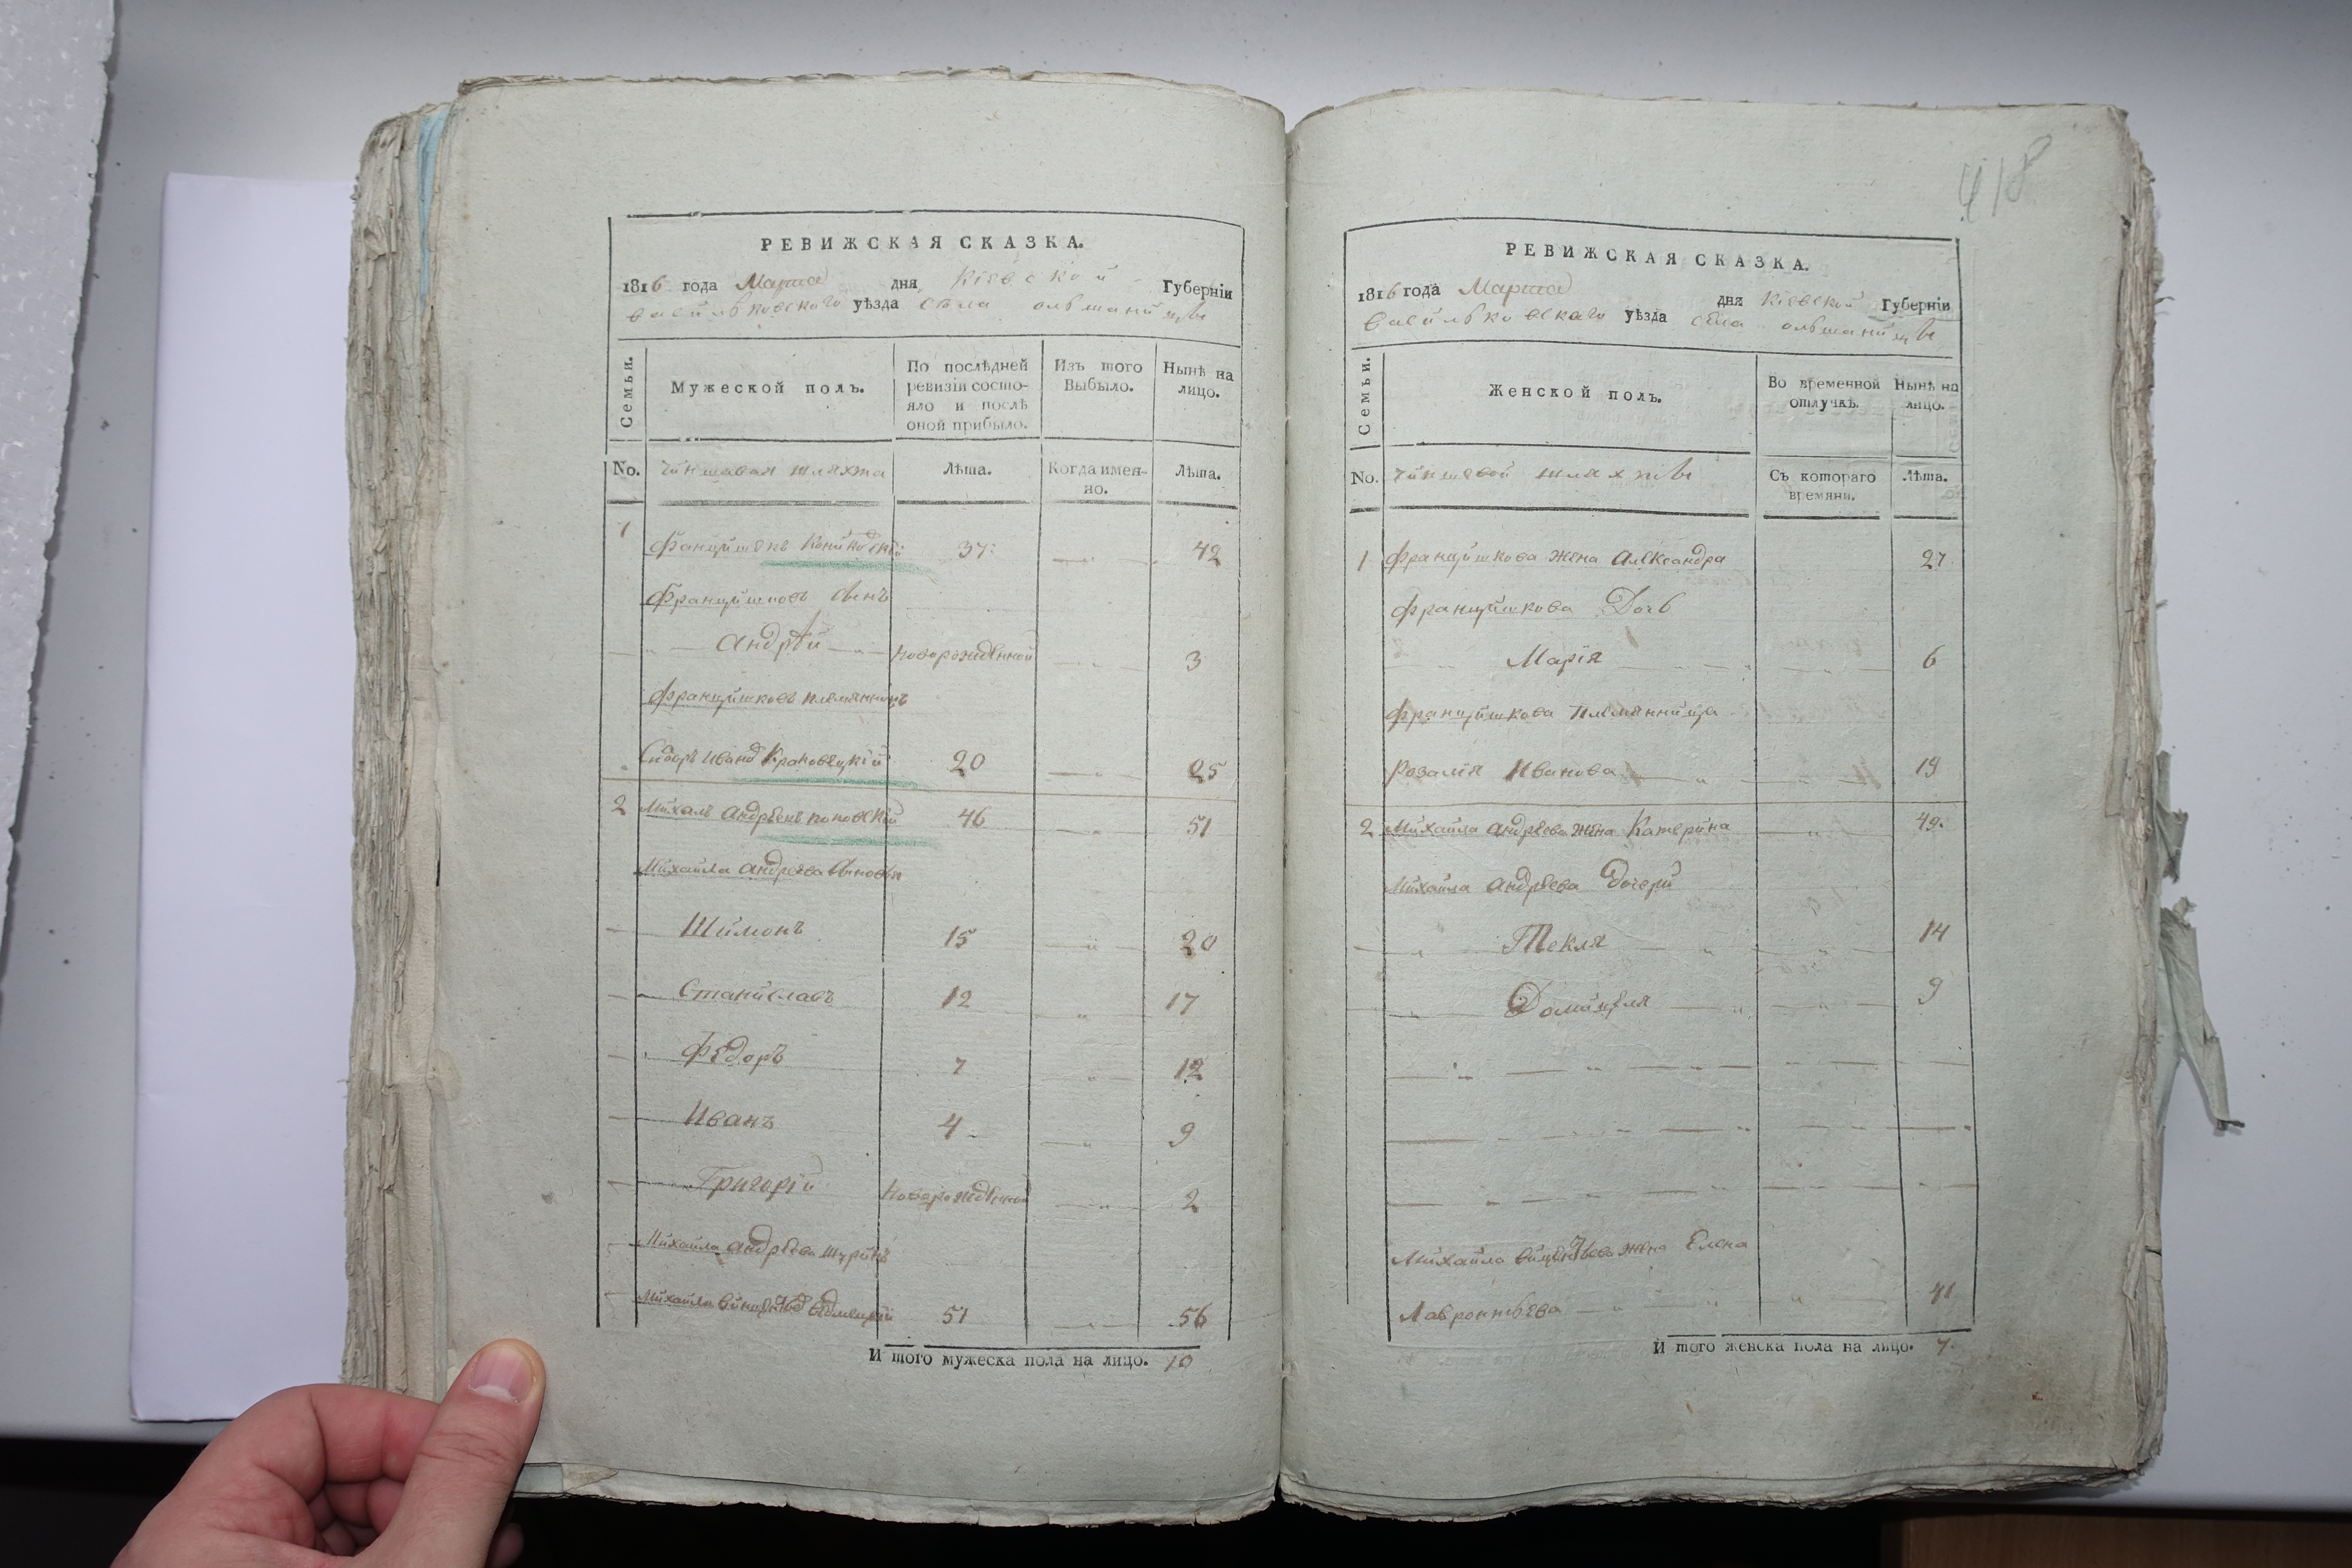 418
РЕВИЖСКАЯ СКАЗКА.
1816 года Марта дня Кіевской Губерніи
васильковского уѣзда села ольшаницы
Семьи.
Мужеской полъ.
По послѣдней ревизіи состояло и послѣ оной прибыло.
Изъ того Выбыло.
Нынѣ на лицо.
No. чиншовая шляхта Лѣта. Когда именно. Лѣта.
1 Францишекъ 37 42
Францишковъ сынъ
Андрѣй новорожденной 3
Францишковъ племянникъ
Сидоръ Иванов 20 25
2 Михалъ Андрѣевъ 46 51
Михайла Андрѣева сыновья
Шимонъ 15 20
Станиславъ 12 17
Федоръ 7 12
Иванъ 4 9
Григорій новорожденной 2
Михайла Андрѣева шуринъ
Михайла 51 56
И того мужеска пола на лицо. 10
РЕВИЖСКАЯ СКАЗКА.
1816 года Марта дня Кіевской Губерніи
васильковского уѣзда села ольшаницы
Семьи.
Женской полъ.
Во временной отлучкѣ.
Нынѣ на лицо.
No. чиншевой шляхты Съ котораго времяни. Лѣта.
1 Францишкова жена Александра 27
Францишкова Дочь
Марія 6
Францишкова племянница
Розалія Иванова 19
2 Михайла Андрѣева жена Катерина 49
Михайла Андрѣева дочери
Текля 14
Домицеля 9
Михайла жена Елена
Лавронтьева 41
И того женска пола на лицо. 7